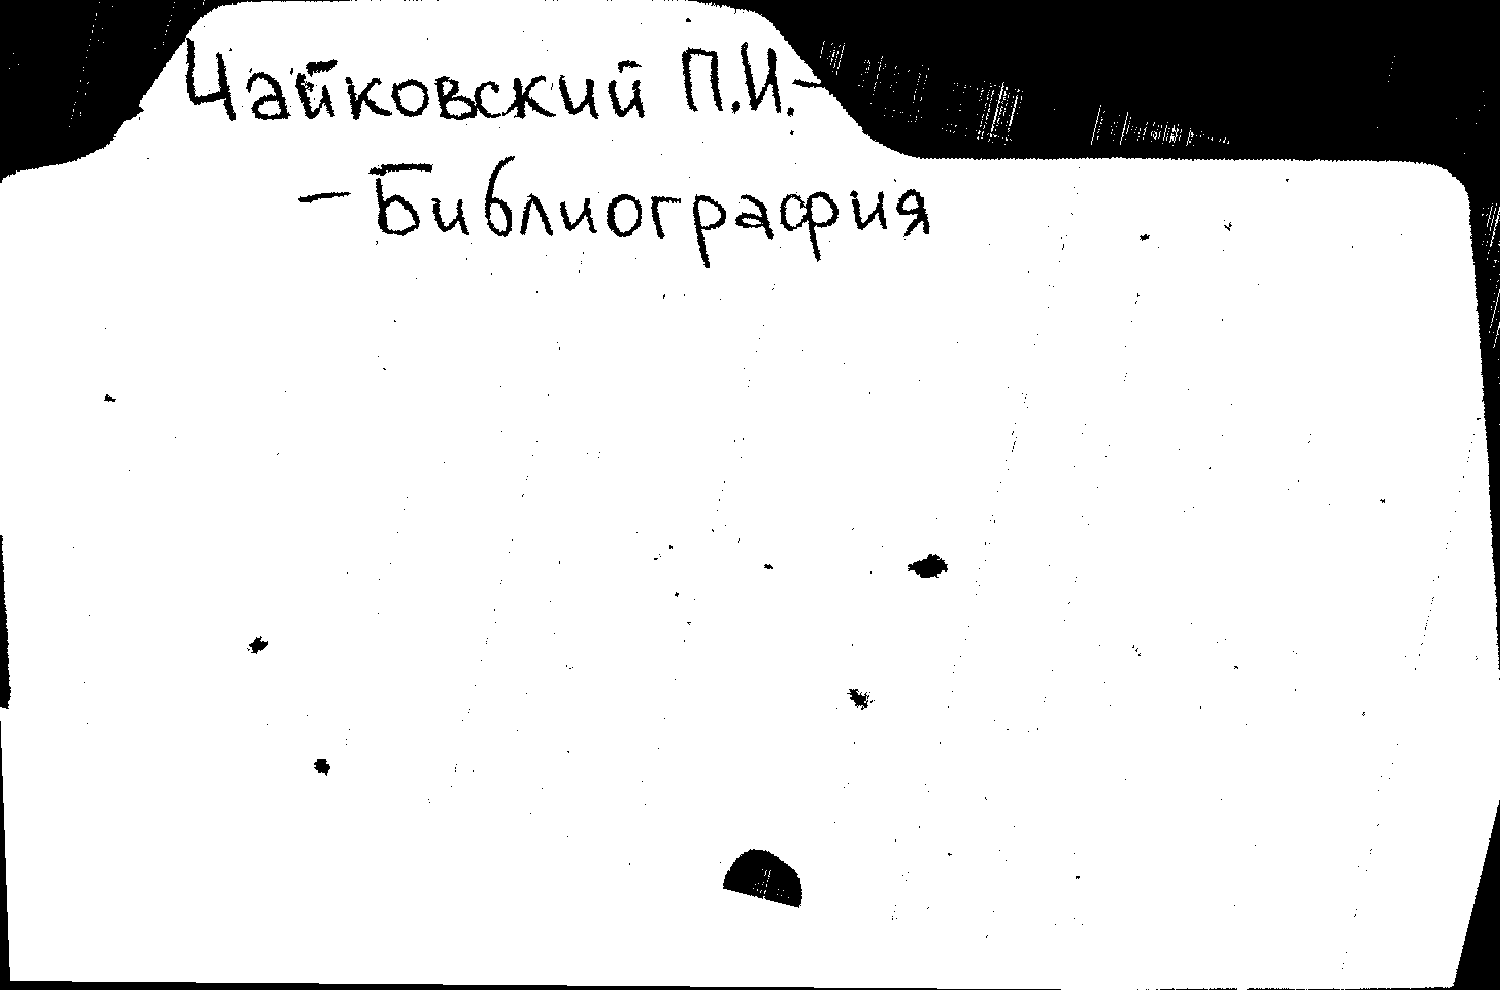 Чайковский П.И.-
- Библиография